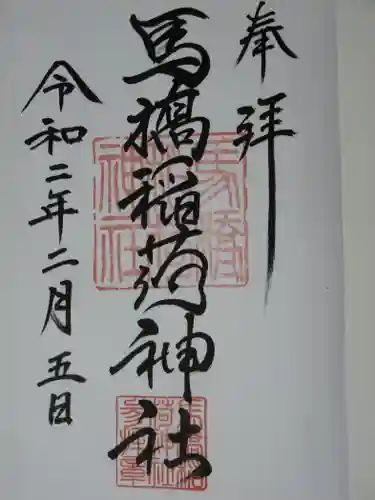 奉拝
馬橋稲荷神社
令和二年二月五日